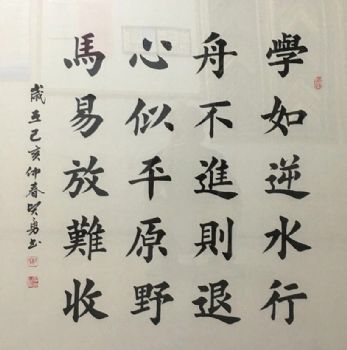 學如逆水行
舟不進則退
心似平原野
馬易放難收
歲在己亥仲春賢勇书